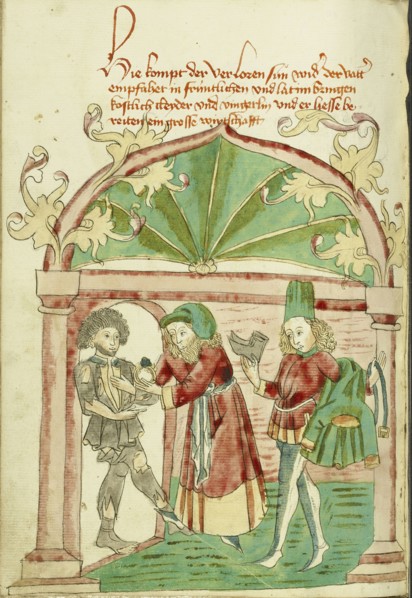 Hie kompt der verloren sun wider der vatter
empfahet in frúntlichen und lat im bringen
kostlich kleyder und vingerlin und er hiesse be-
reiten ein grosse wirtschafft